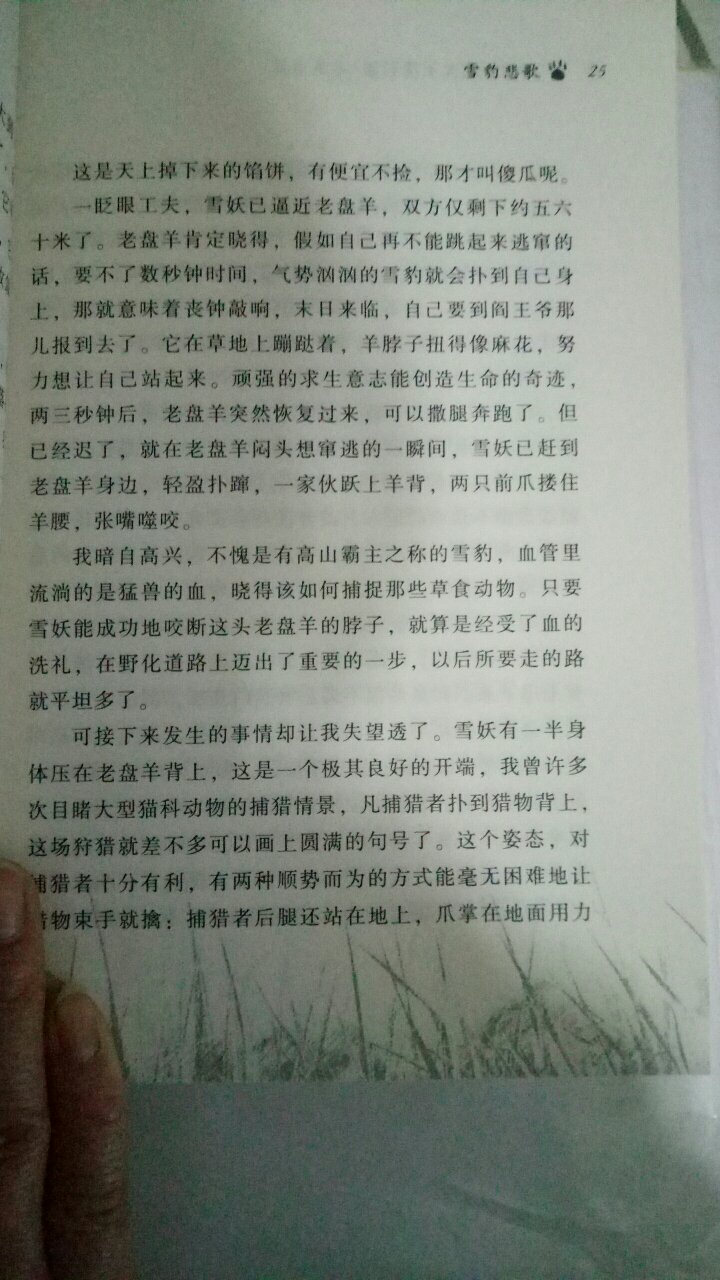 雪豹悲歌 25
这是天上掉下来的馅饼，有便宜不捡，那才叫傻瓜呢。
一眨眼工夫，雪妖已逼近老盘羊，双方仅剩下约五六
十米了。老盘羊肯定晓得，假如自己再不能跳起来逃窜的
话，要不了数秒钟时间，气势汹汹的雪豹就会扑到自己身
上，那就意味着丧钟敲响，末日来临，自己要到阎王爷那
儿报到去了。它在草地上蹦跶着，羊脖子扭得像麻花，努
力想让自己站起来。顽强的求生意志能创造生命的奇迹，
两三秒钟后，老盘羊突然恢复过来，可以撒腿奔跑了。但
已经迟了，就在老盘羊闷头想窜逃的一瞬间，雪妖已赶到
老盘羊身边，轻盈扑蹿，一家伙跃上羊背，两只前爪搂住
羊腰，张嘴噬咬。
我暗自高兴，不愧是有高山霸主之称的雪豹，血管里
流淌的是猛兽的血，晓得该如何捕捉那些草食动物。只要
雪妖能成功地咬断这头老盘羊的脖子，就算是经受了血的
洗礼，在野化道路上迈出了重要的一步，以后所要走的路
就平坦多了。
可接下来发生的事情却让我失望透了。雪妖有一半身
体压在老盘羊背上，这是一个极其良好的开端，我曾许多
次目睹大型猫科动物的捕猎情景，凡捕猎者扑到猎物背上，
这场狩猎就差不多可以画上圆满的句号了。这个姿态，对
捕猎者十分有利，有两种顺势而为的方式能毫无困难地让
猎物束手就擒：捕猎者后腿还站在地上，爪掌在地面用力